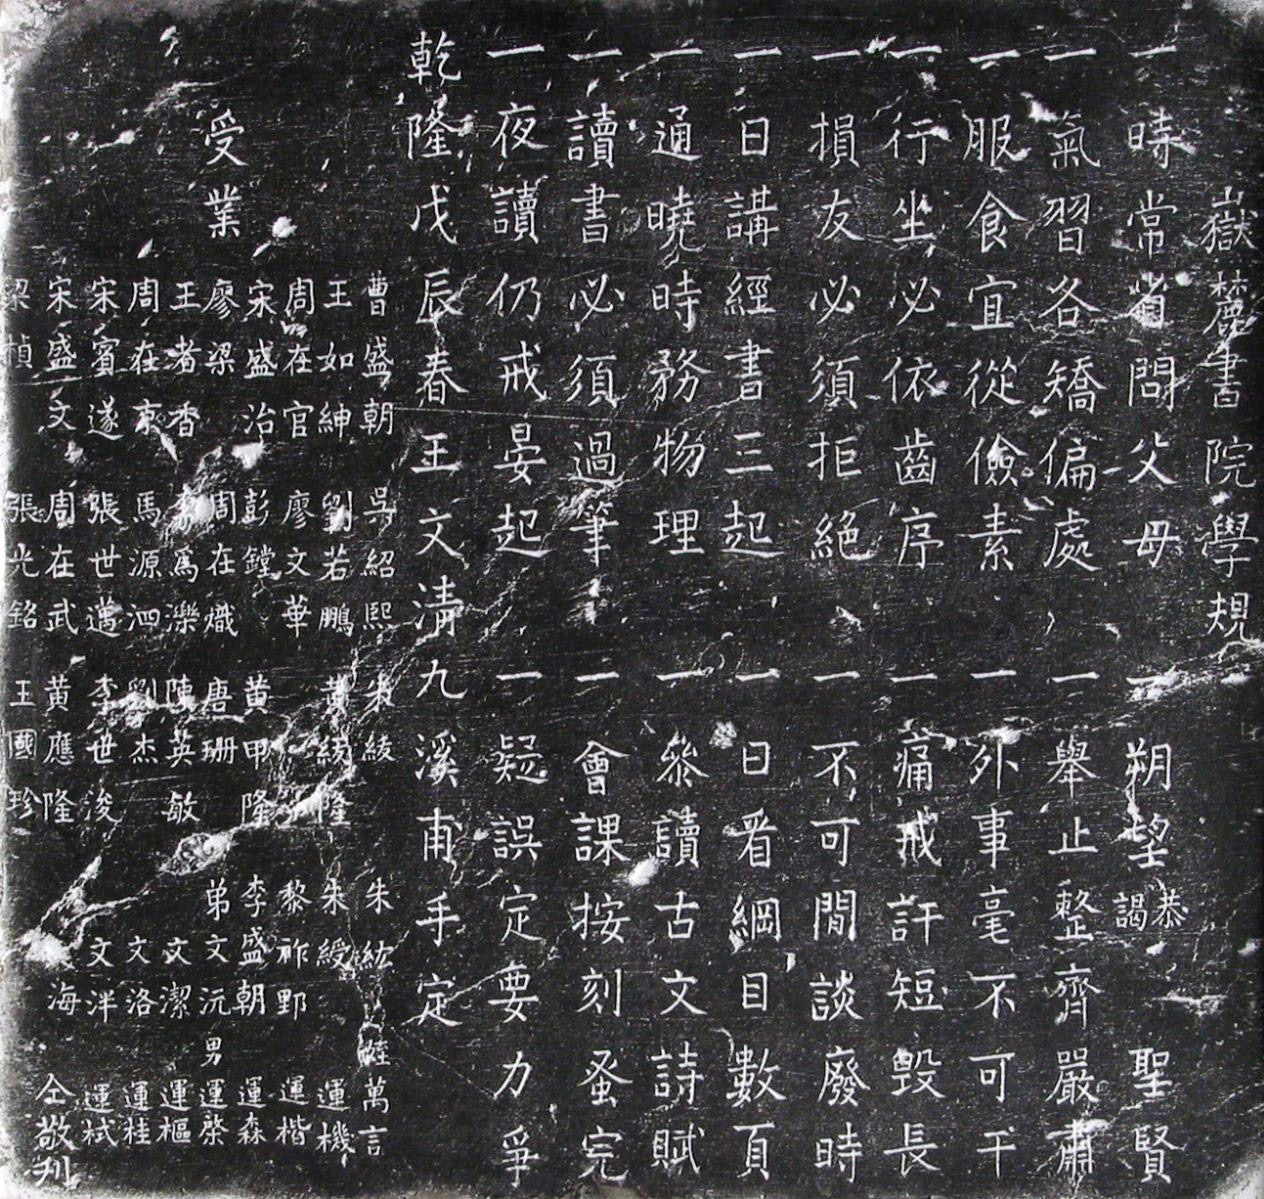 嶽麓書院學規
一時常省問父母　一朔望恭謁聖賢
一氣習各矯偏處　一舉止整齊嚴肅
一服食宜從儉素　一外事毫不可干
一行坐必依齒序　一痛戒訐短毀長
一損友必須拒絕　一不可閒談廢時
一日講經書三起　一日看綱目數頁
一通曉時務物理　一參讀古文詩賦
一讀書必須過筆　一會課按刻蚤完
一夜讀仍戒晏起　一疑誤定要力爭
乾隆戊辰春王文清九溪甫手定
受業
曹盛朝　吳紹熙　朱綾　朱紘　姪萬言
王如紳　劉若鵬　黄綉隆　朱綬　運機
周在官　廖文華　黎祚野　運楷
宋盛治　彭鏜　黄甲隆　李盛朝　運森
廖梁　周在熾　唐珊　弟文沅　男運棨
王者香　李為濼　陳英敏　文潔　運樞
周在京　馬源泗　劉杰　文洛　運桂
宋賓遂　張世邁　李世浚　文洋　運栻
宋盛文　周在武　黃應隆　海　仝敬刋
梁楨　張光銘　王國珍